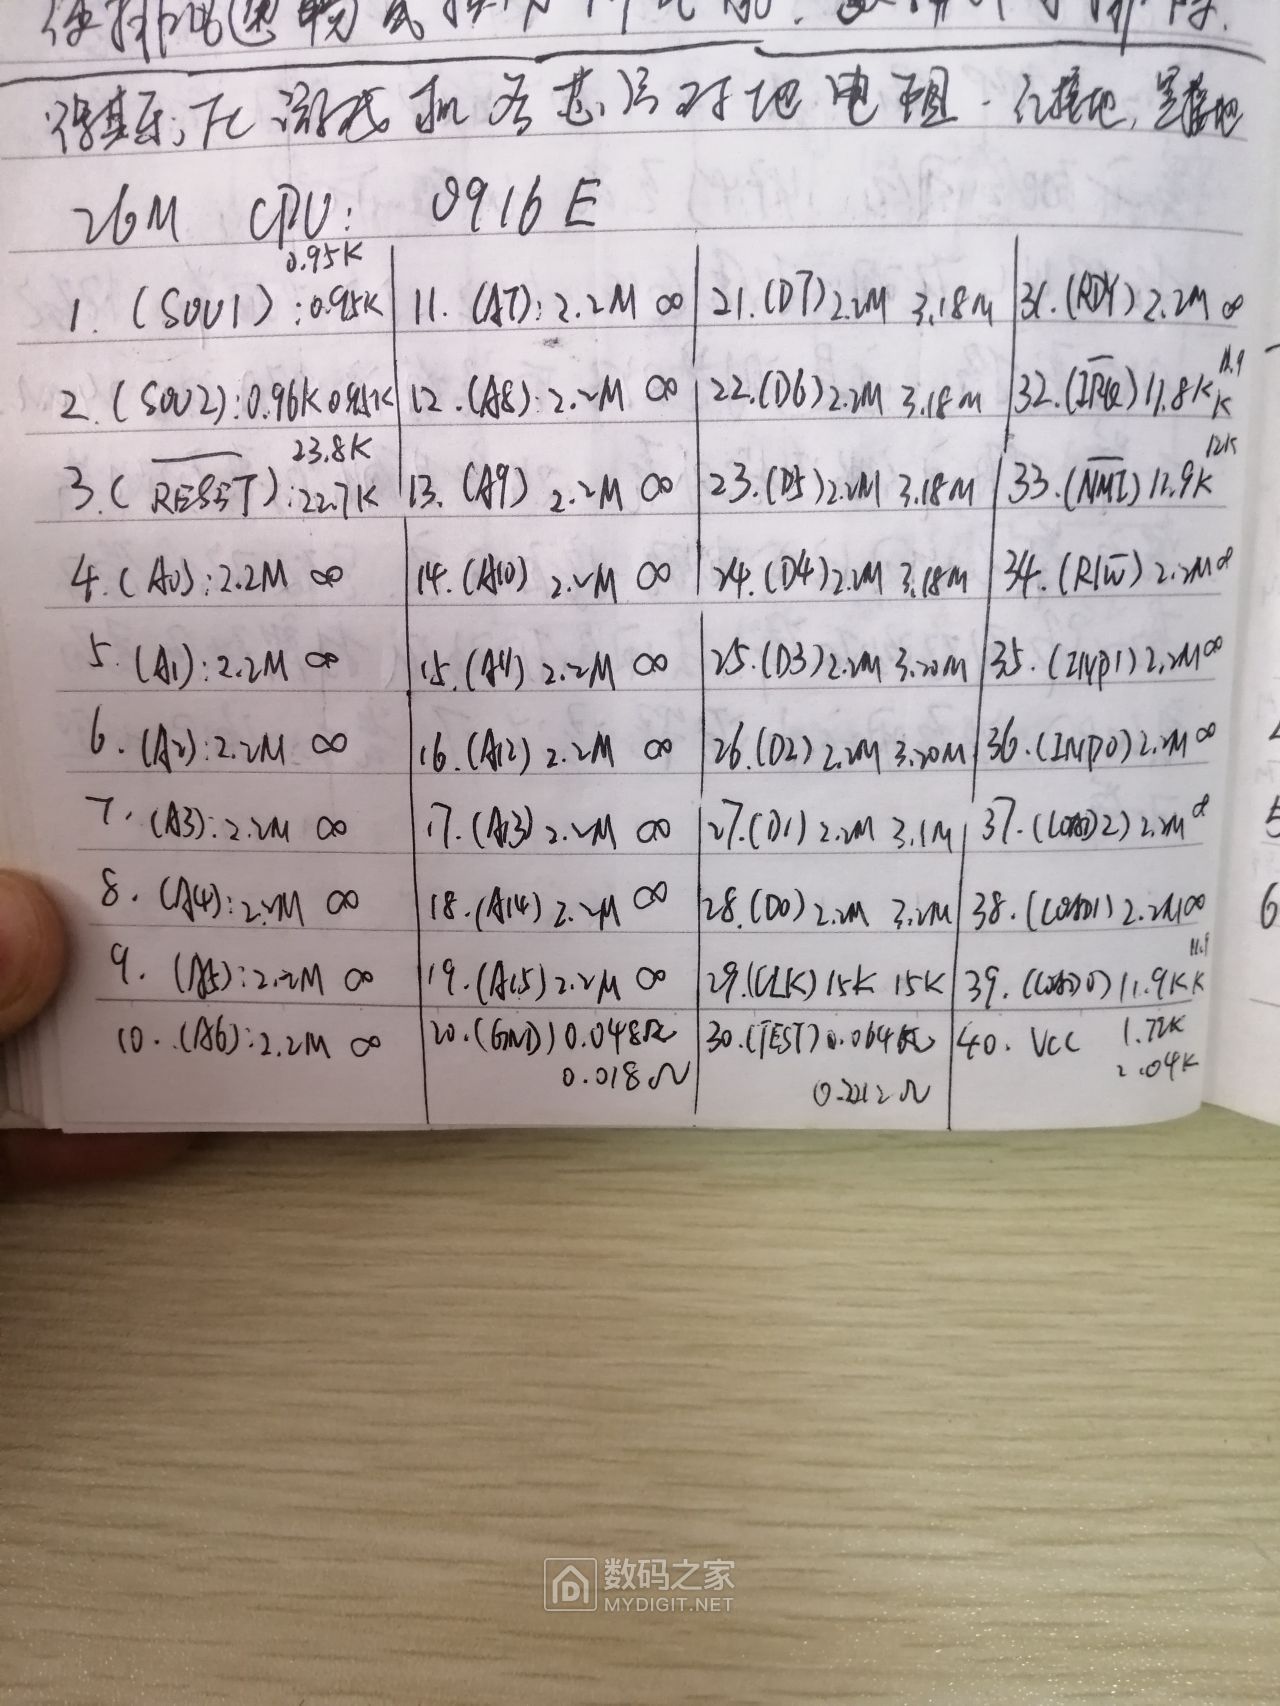 得其乐:FC游戏机各芯片对地电阻. 红接地, 黑接地
26M CPU: 0916E
0.95K
1. (SOU1):0.95K 11. (A7):2.2M ∞ 21.(D7)2.2M 3.18M 31.(RDY)2.2M ∞
11.9
2. (SOU2):0.96K 0.95K 12.(A8):2.2M ∞ 22.(D6)2.2M 3.18M 32.(IRQ)11.8K K
23.8K 12K
3.(RESET):22.7K 13. (A9) 2.2M ∞ 23.(D5)2.2M 3.18M 33.(NMI)11.9K
4.(A0):2.2M ∞ 14.(A10) 2.2M ∞ 24.(D4)2.2M 3.18M 34.(R/W) 2.2M ∞
5.(A1):2.2M ∞ 15.(A11) 2.2M ∞ 25.(D3)2.2M 3.20M 35.(INP1)2.2M ∞
6.(A2):2.2M ∞ 16.(A12) 2.2M ∞ 26.(D2)2.2M 3.20M 36.(INP0)2.2M ∞
7.(A3):2.2M ∞ 17.(A13) 2.2M ∞ 27.(D1)2.2M 3.1M 37.(LOAD2)2.2M ∞
8.(A4):2.2M ∞ 18.(A14) 2.2M ∞ 28.(D0)2.2M 3.2M 38.(LOAD1)2.2M ∞
11.9
9.(A5):2.2M ∞ 19.(A15)2.2M ∞ 29.(CLK)15K 15K 39.(LOAD0)11.9K K
10.(A6):2.2M ∞ 20.(GND)0.048Ω 30.(TEST)0.064Ω 40. VCC 1.72K
0.018Ω 2.04K
5
6
数码之家
MYDIGIT.NET